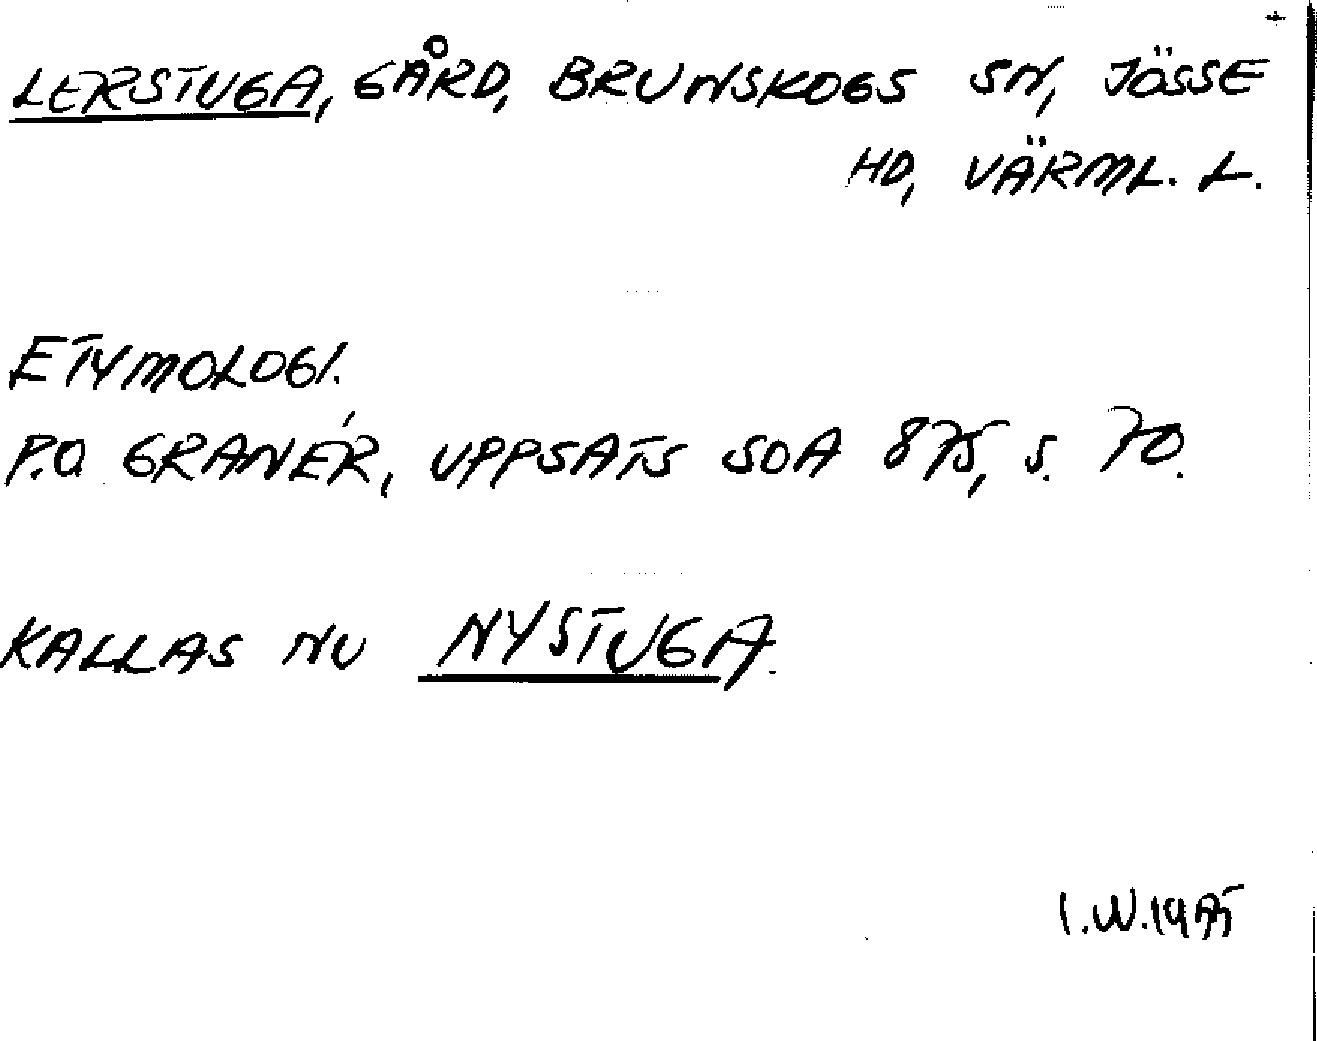 LERSTUGA, GÅRD, BRUNSKOGS SN, JÖSSE
HD, VÄRML. L.
ETYMOLOGI.
P.O GRANÉR, UPPSATS SOA 875, S. 70.
KALLAS NU NYSTUGA.
I.W.1975